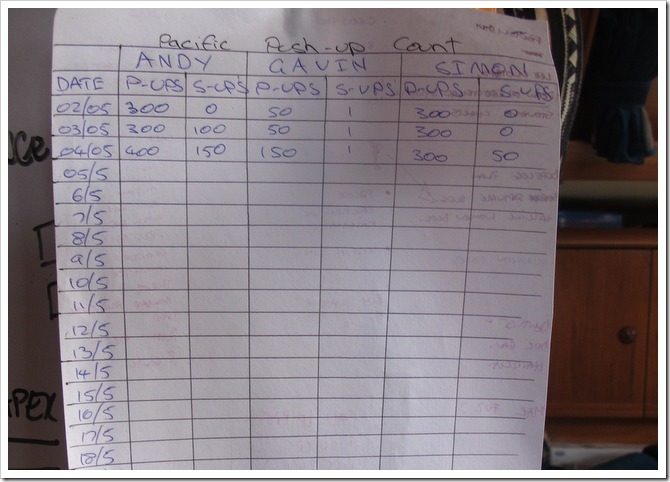 Pacific Push-up Count
ANDY GAVIN SIMON
DATE P-UPS S-UPS P-UPS S-UPS P-UPS S-UPS
02/05 300 0 50 1 300 0
03/05 300 100 50 1 300 0
04/05 400 150 150 1 300 50
05/5
6/5
7/5
8/5
9/5
10/5
11/5
12/5
13/5
14/5
15/5
16/5
17/5
18/5
APEX